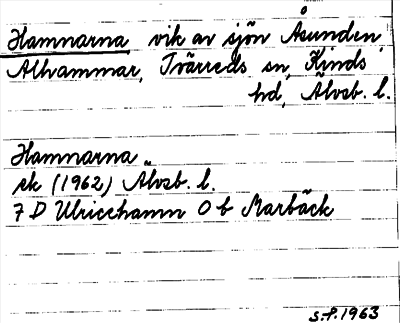 Hamnarna vik av sjön Åsunden
Alhammar, Tvärreds sn, Kinds
hd, Älvsb. l.
Hamnarna
ek (1962) Älvsb. l.
7 D Ulricehamn O b Marbäck
S.P. 1963